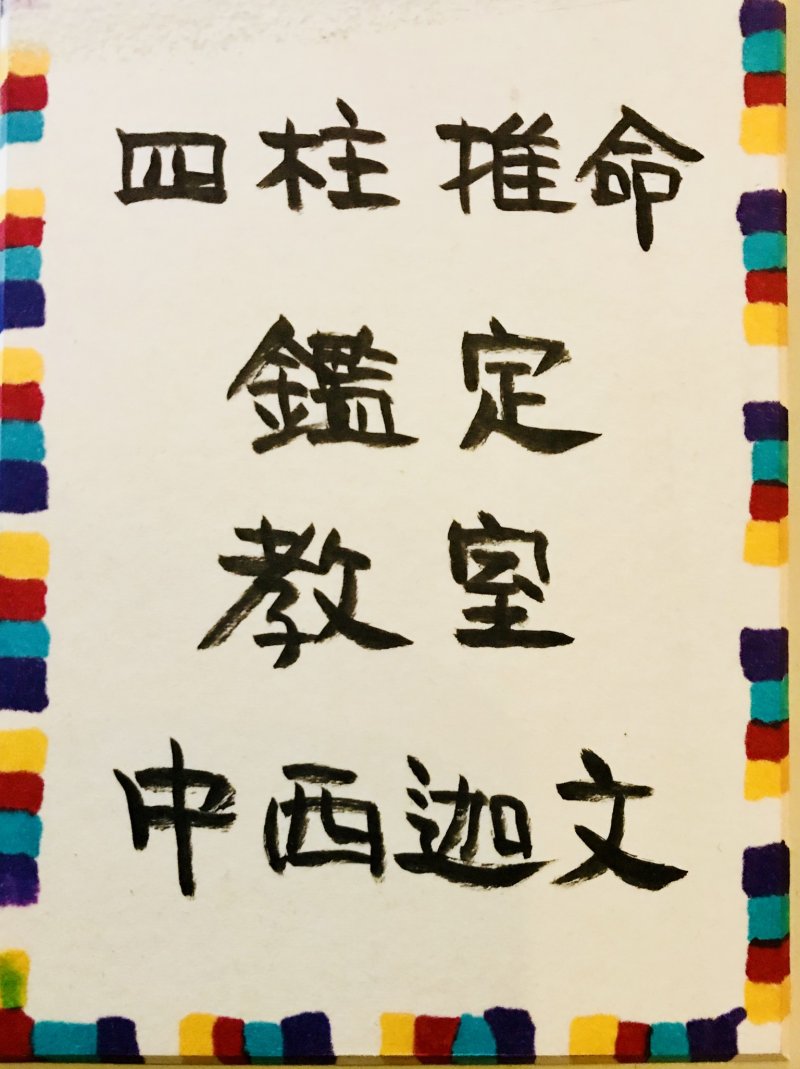 四柱推命
鑑定
教室
中西迦文